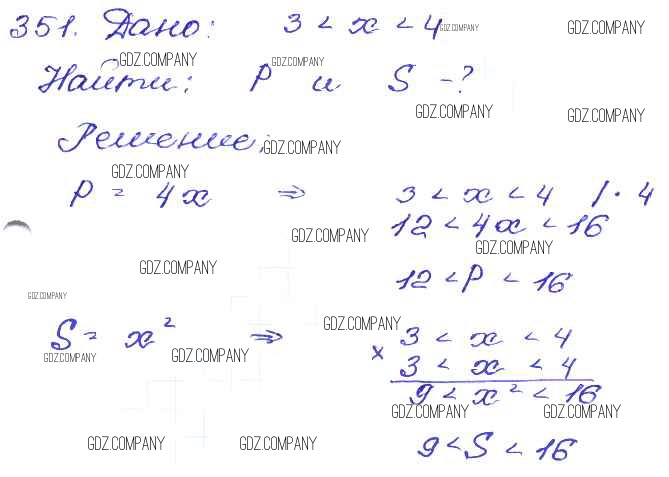 351. Дано: 3 < x < 4 GDZ.COMPANY GDZ.COMPANY
GDZ.COMPANY GDZ.COMPANY
Найти: P и S -?
GDZ.COMPANY GDZ.COMPANY
Решение: GDZ.COMPANY
GDZ.COMPANY
P = 4x ⇒ 3 < x < 4 /· 4
12 < 4x < 16
GDZ.COMPANY GDZ.COMPANY
GDZ.COMPANY
12 < P < 16
GDZ.COMPANY
S = x² ⇒ GDZ.COMPANY 3 < x < 4
GDZ.COMPANY GDZ.COMPANY × 3 < x < 4
9 < x² < 16
GDZ.COMPANY GDZ.COMPANY
GDZ.COMPANY GDZ.COMPANY 9 < S < 16